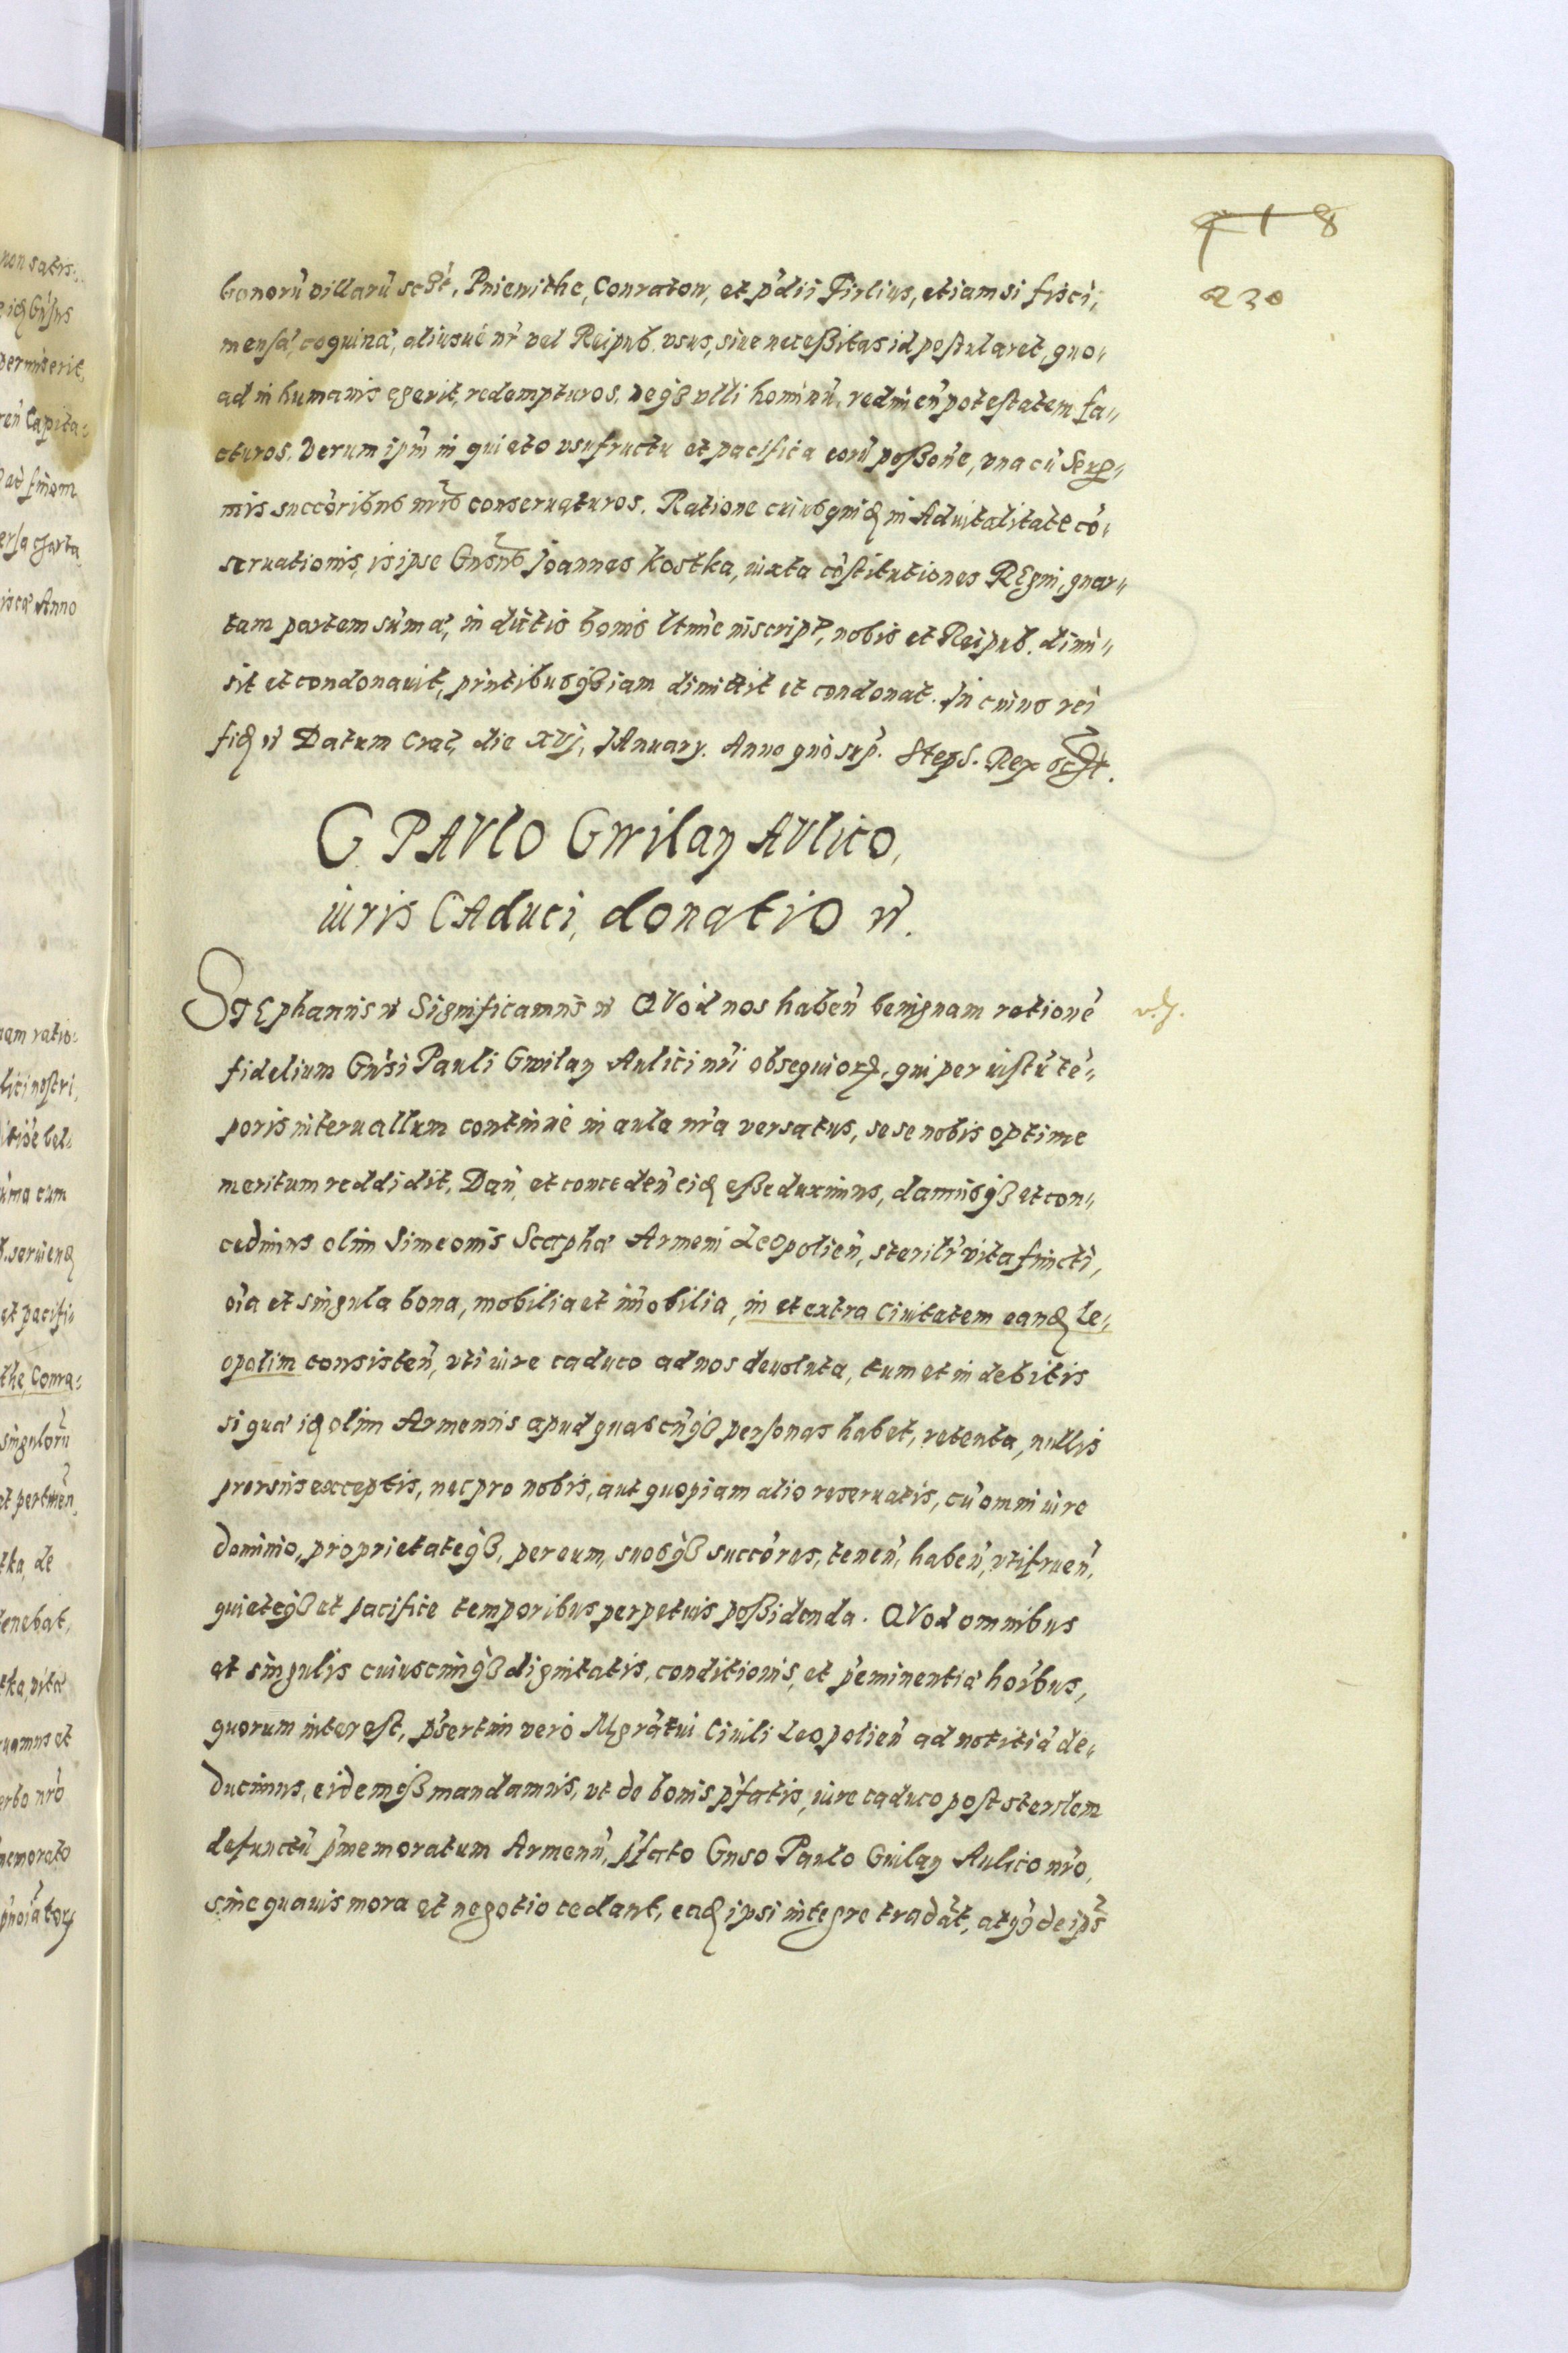 418
220
bonorũ villarũ sctt. Pniewithe, Conratow, et p̃dii Firlius, etiamsi fisci,
mensæ, coquinæ, aliusuè nr̃ vel Reipub. vsus, siue necessitas id postularet, quo„
ad in humanis egerit, redempturos, neqꝫ vlli hominũ, redimeñ potestatem fa„
cturos. Verum ipm̃ in quieto vsufructu et pacifica eorũ possõne, vna cũ Serꝑ„
mis succõribus nr̃is conseruaturos. Ratione cuius quidẽ in Aduitalitate cõ„
seruationis, is ipse Gnsus Joannes Kostka, iuxta cõstitutiones Regni, quar„
tam partem sum̃æ, in dictis bonis ltm̃e inscript, nobis et Reipub. dimi„
sit et condonauit, pñtibusqꝫ iam dimittit et condonat. In cuius rei
fidẽ etc Datum Crac, die xvj, January. Anno quo sup̃. Steph. Rex sst.
G. PAVlO Gwilay AVlico,
iuris CAduci, donatio etc.
STEphanus etc Significamus etc QVod nos habeñ benignam rationẽ
v. J.
fidelium Gnsi Pauli Gwilay Aulici nr̃i obsequiorꝫ, qui per iustũ tẽ„
poris interuallum continuè in aula nr̃a versatus, sese nobis optime
meritum reddidit, Dañ, et concedeñ eidẽ esse duximus, damusqꝫ et con„
cedimus olim Simeonis Scaphæ Armeni Leopolieñ, sterilr̃ vita functi,
oĩa et singula bona, mobilia et im̃obilia, in et extra Ciuitatem eandẽ Le„
opolim consisteñ, vti iure caduco ad nos deuoluta, tum et in debitis
si quæ idẽ olim Armenus apud quascũqꝫ personas habet, retenta, nullis
prorsus exceptis, nec pro nobis, aut quopiam alio reseruatis, cũ omni iure
dominio, proprietateqꝫ, per eum, suosqꝫ succõres, teneñ, habeñ, vtifrueñ,
quieteqꝫ et pacifice temporibus perpetuis possidenda. QVod omnibus
et singulis cuiuscunqꝫ dignitatis, conditionis, et p̃eminentiæ hoĩbus,
quorum interest, p̃sertim verò Mgr̃atui Ciuili Leopolieñ ad notitiã de„
ducimus, eidemqꝫ mandamus, vt de bonis p̃fatis, iure caduco post sterilem
defunctũ p̃memoratum Armenũ, p̃fato Gnso Paulo Gwilay Aulico nr̃o,
sine quauis mora et negotio cedant, eadẽ ipsi integre tradãt, atqꝫ de ip̃s